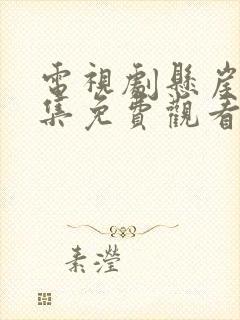 電視劇懸崖
集免費觀看
素瀅